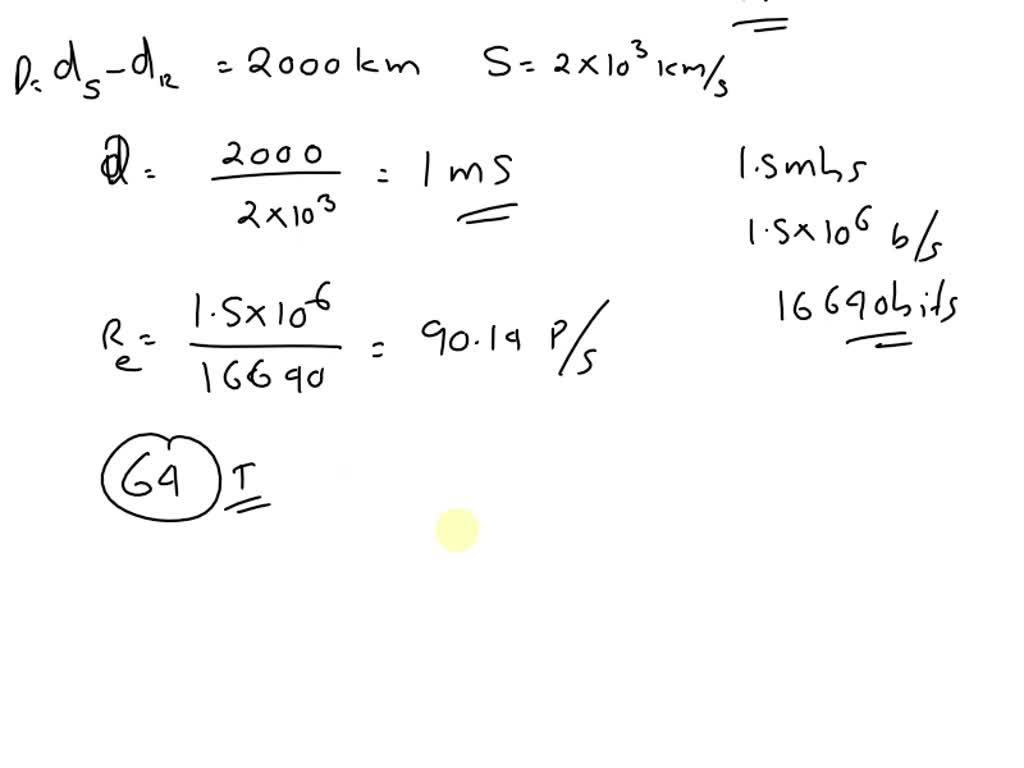 D= dₛ - d₁₂ = 2000 km S = 2×10³ km/s
d = 2000 / 2×10³ = 1 ms
1.5mbs
1.5×10⁶ b/s
16690bits
Re = 1.5×10⁻⁶ / 16690 = 90.19 P/s
64 T